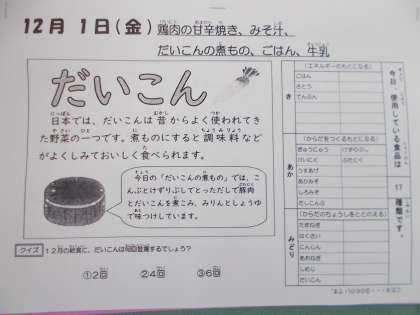 12月 1日(金) 鶏肉の甘辛焼き、みそ汁、
だいこんの煮もの、ごはん、牛乳
だいこん
日本では、だいこんは昔からよく使われてき
た野菜の一つです。煮ものにすると調味料など
がよくしみておいしく食べられます。
今日の「だいこんの煮もの」では、こ
んぶとけずりぶしでとっただしで豚肉
とだいこんを煮こみ、みりんとしょうゆ
で味つけしています。
クイズ 12月の給食に、だいこんは何回登場するでしょう?
①2回 ②4回 ③6回
今日、使用している食品は 17 種類です。
き
(エネルギーのもとになる)
ごはん
さとう
でんぷん
あか
(からだをつくるもとになる)
ぎゅうにゅう けずりぶし
けいにく ぶたにく
うすあげ
あかみそ
しろみそ
だしこんぶ
みどり
(からだのちょうしをととのえる)
たまねぎ
はくさい
にんじん
あおねぎ
しめじ
だいこん